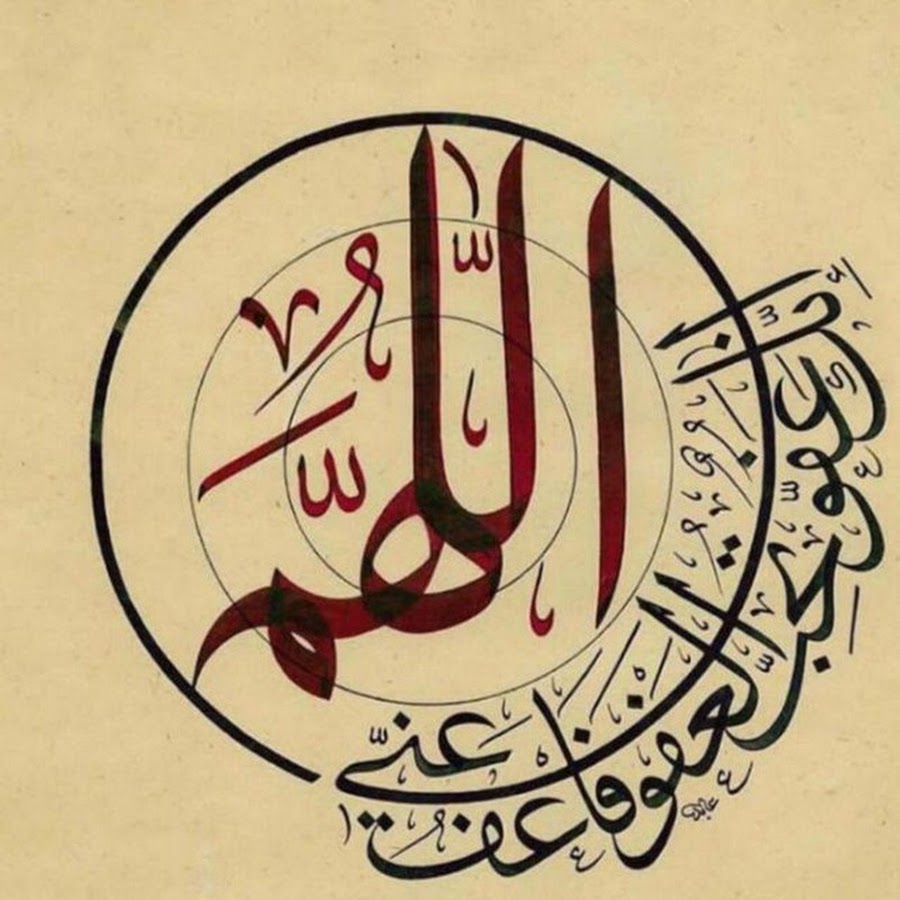 اللّٰهُمَّ
إِنَّكَ عَفُوٌّ تُحِبُّ الْعَفْوَ فَاعْفُ عَنِّي